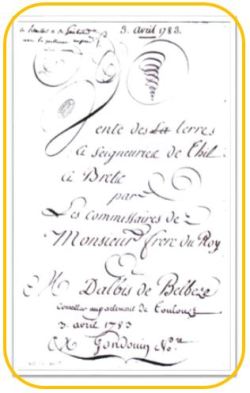 3. avril 1783.
Vente des terres
& seigneuries de Thil
& Bretx
par
Les commissaires de
Monsieur frere du Roy
A M Dalbis de Belbeze
Conseiller au parlement de Toulouse
3. avril 1783
Gondouin No.re